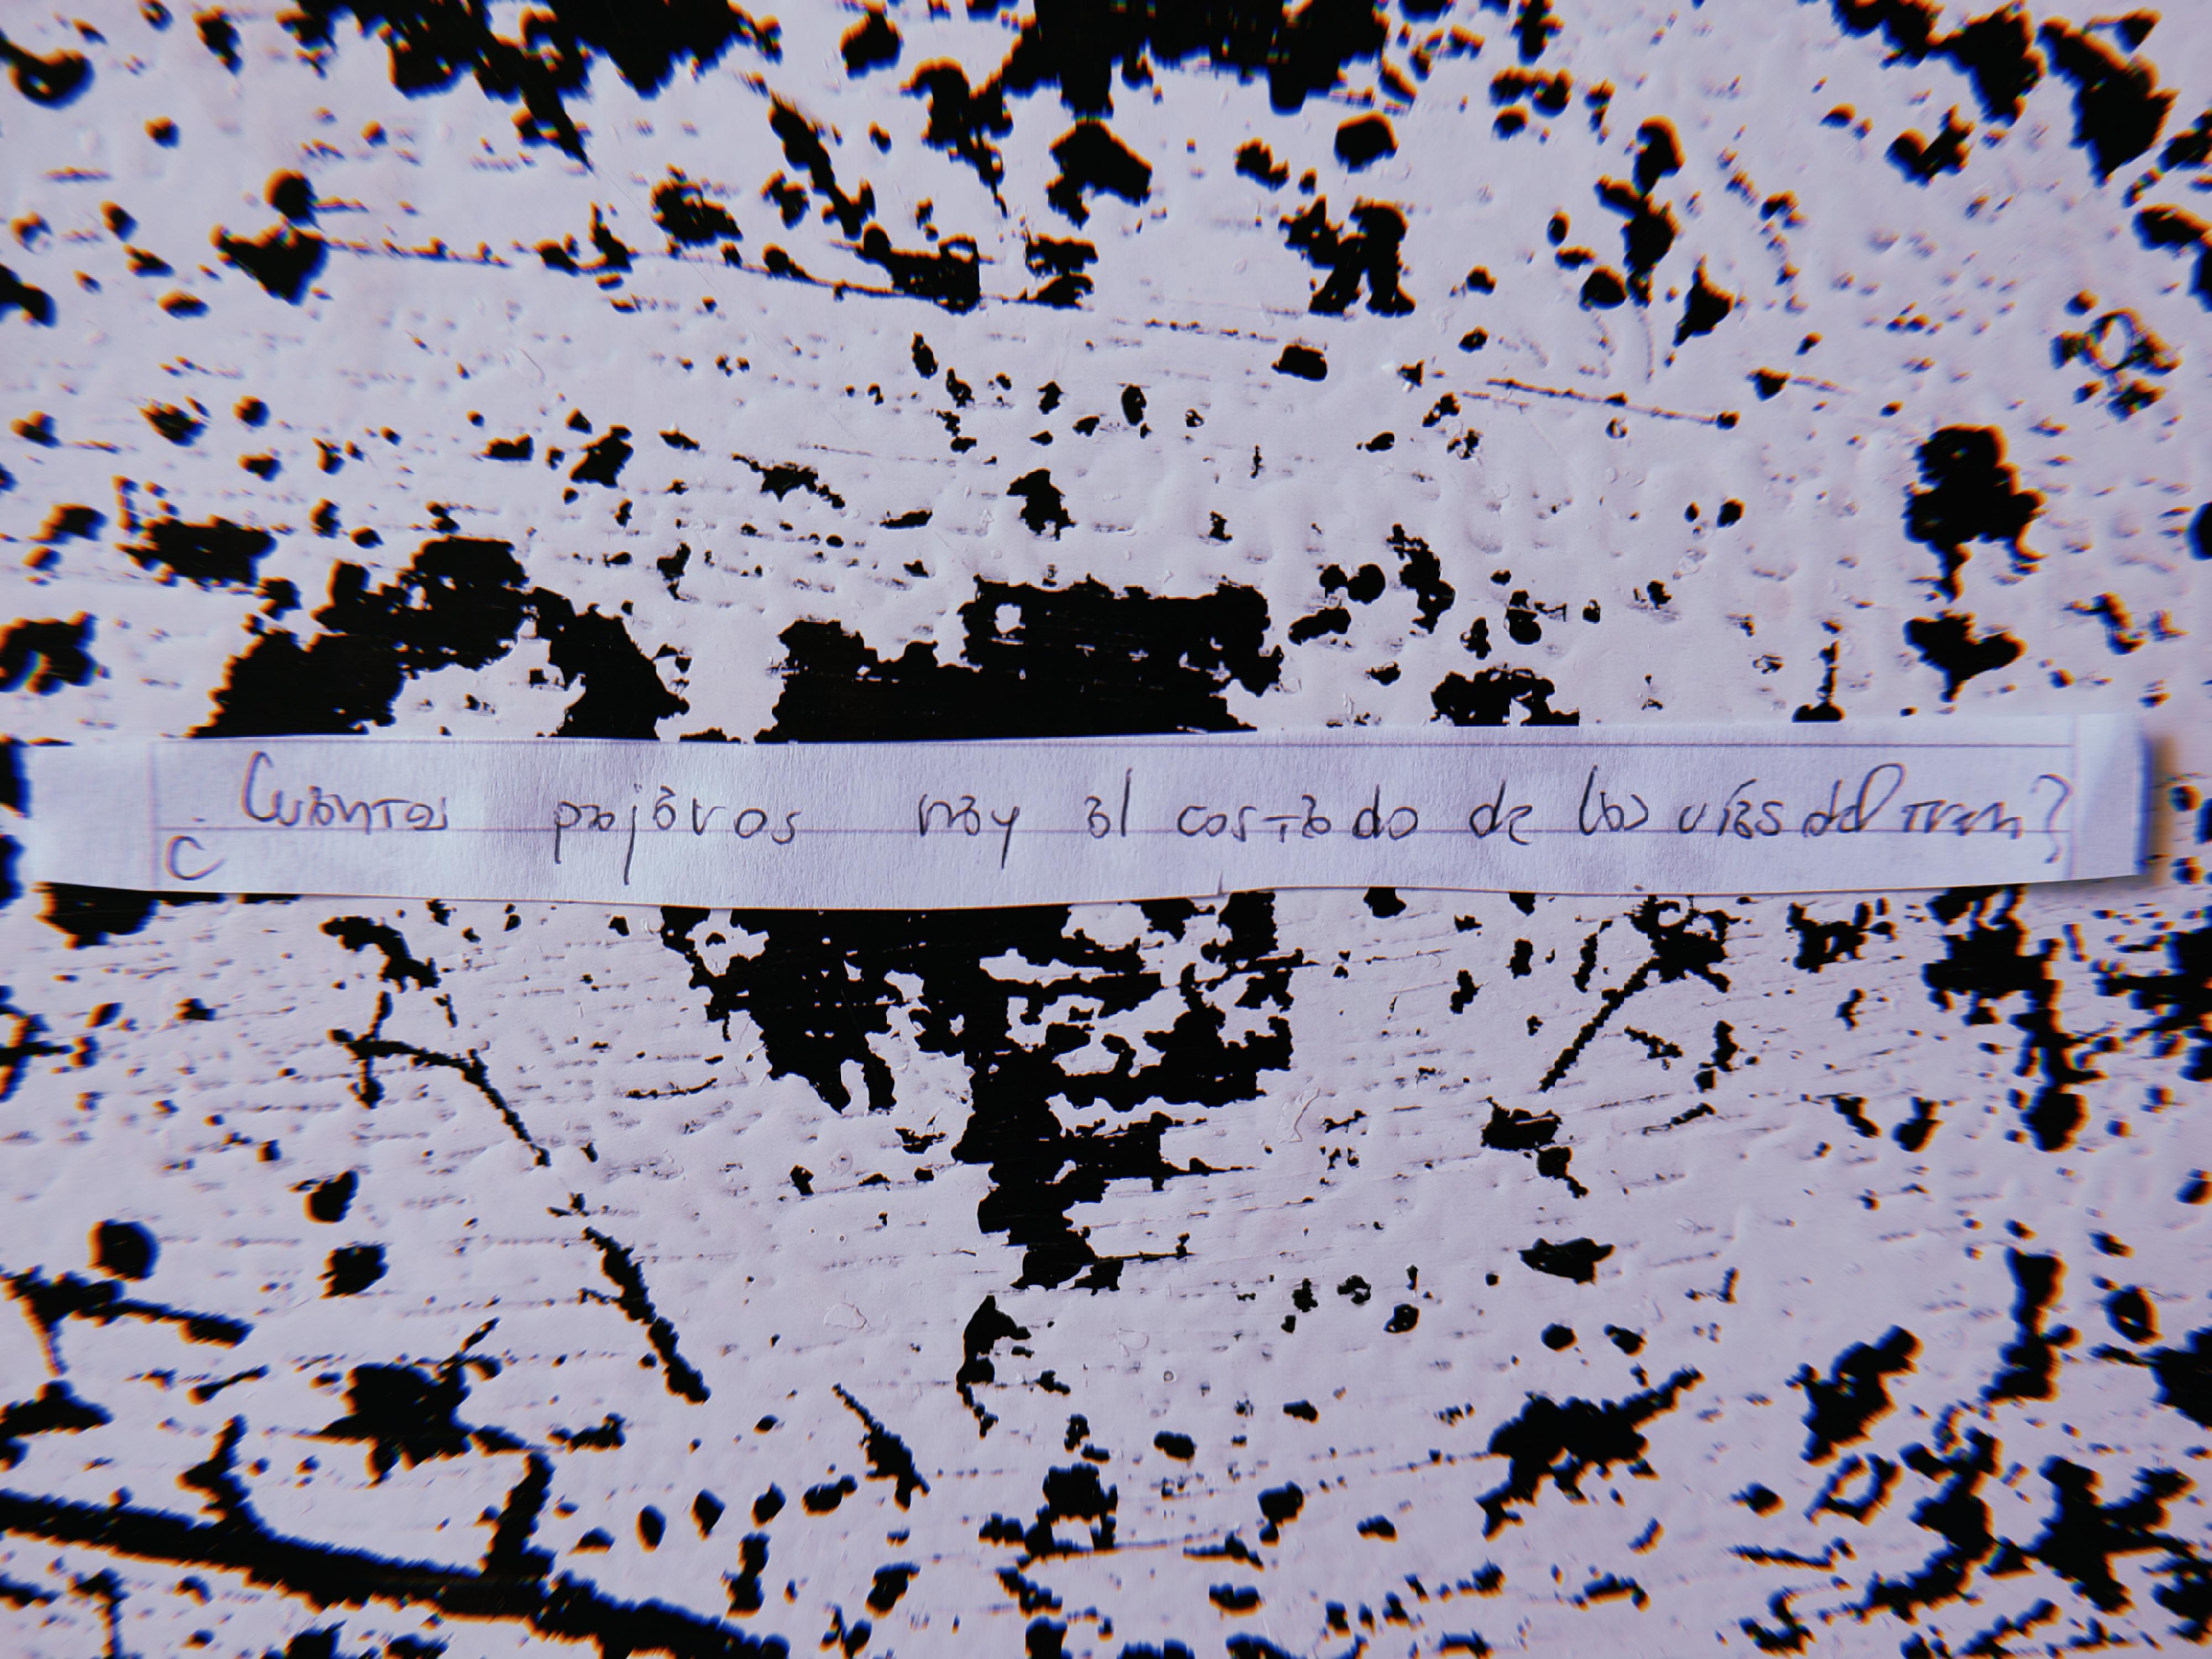 ¿Cuántos pájaros hay al costado de las vías del tren?